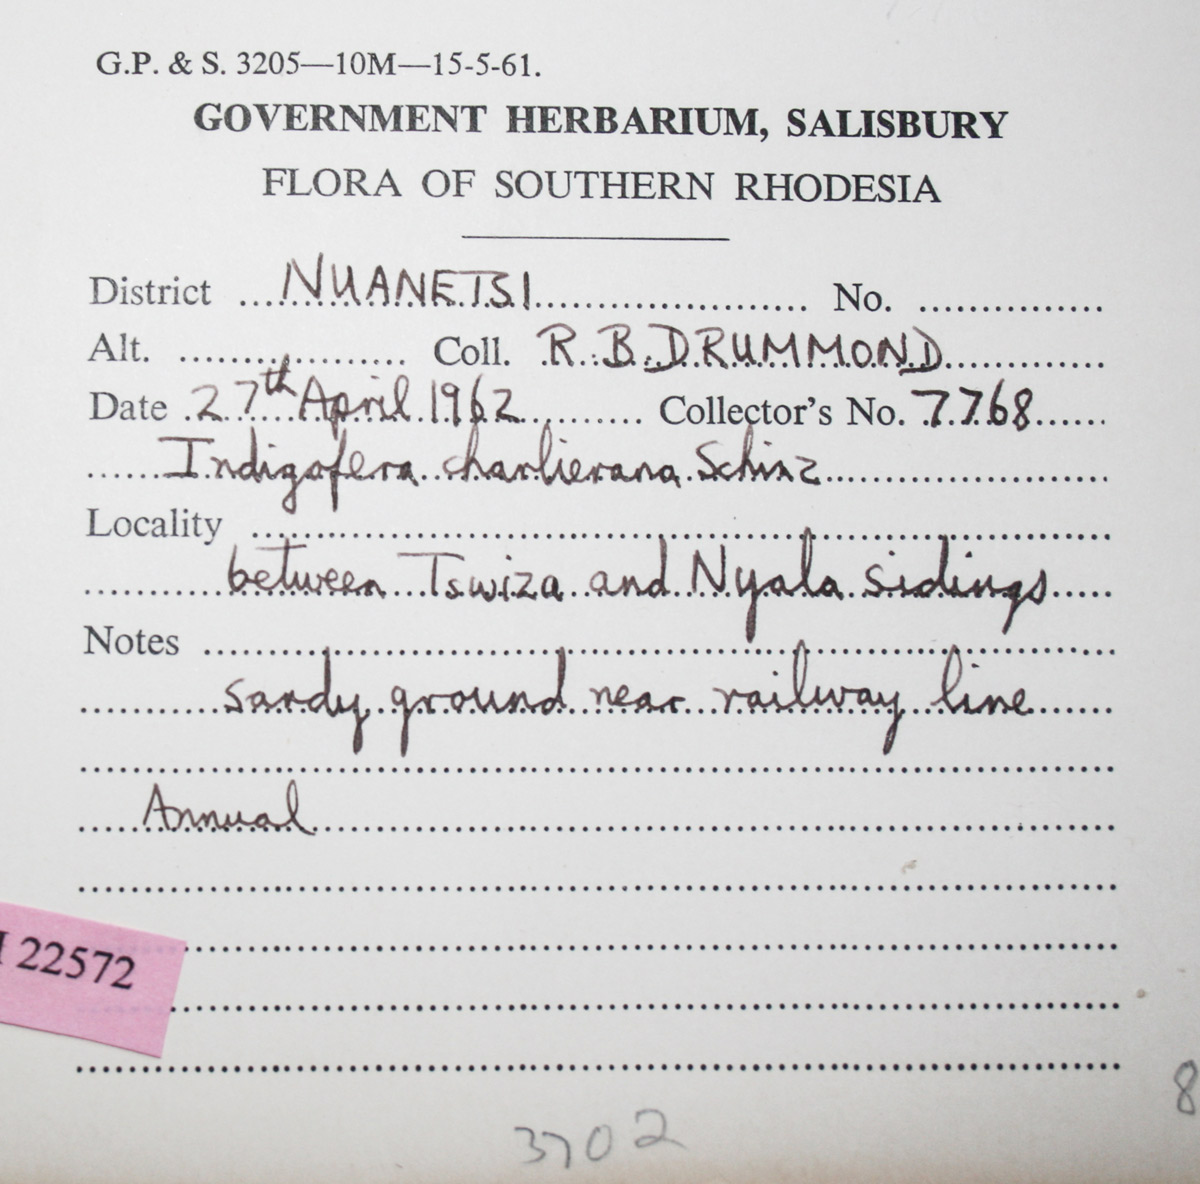 G.P. & S. 3205—10M—15-5-61.
GOVERNMENT HERBARIUM, SALISBURY
FLORA OF SOUTHERN RHODESIA
District NUANETSI No.
Alt. Coll. R. B. DRUMMOND
Date 27th April 1962 Collector's No. 7768
Indigofera charlierana Schinz
Locality
between Tswiza and Nyala sidings
Notes
sandy ground near railway line
Annual
22572
3702
8